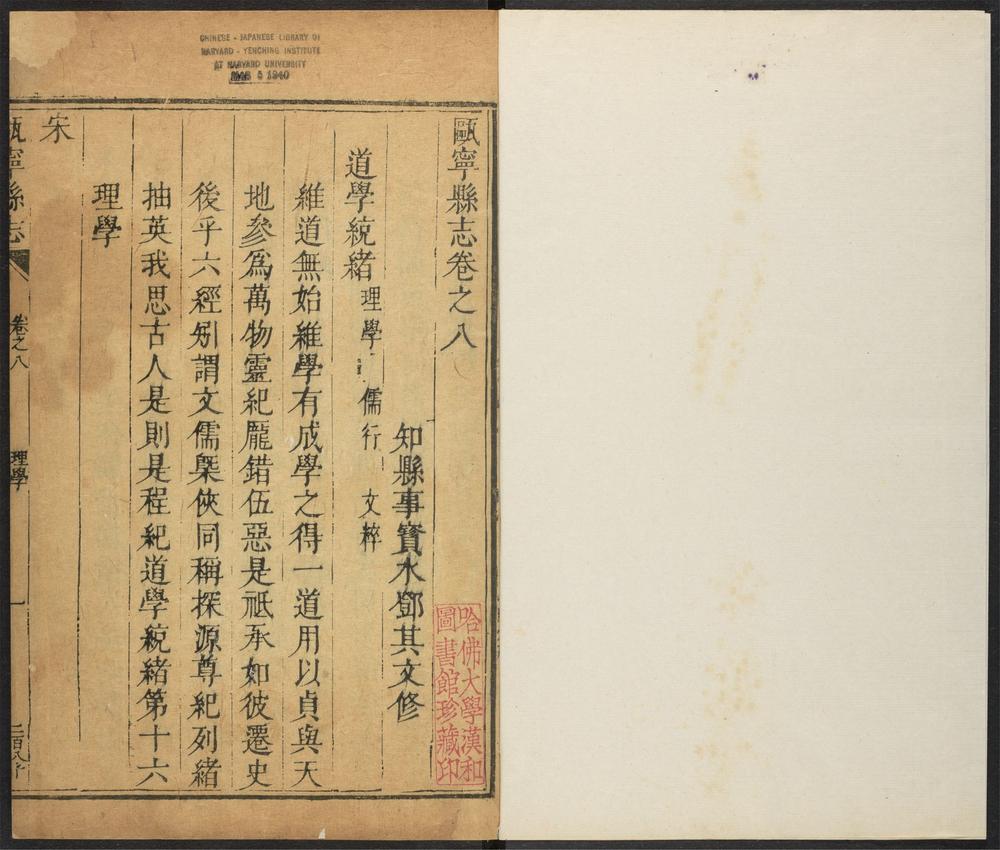 CHINESE - JAPANESE LIBRARY OF
HARVARD - YENCHING INSTITUTE
AT HARVARD UNIVERSITY
MAR 5 1940
甌寧縣志卷之八
知縣事寶水鄧其文修
道學統緒 理學 儒行 文粹
維道無始維學有成學之得一道用以貞與天
地參爲萬物靈紀厖錯伍惡是祗承如彼遷史
後乎六經別謂文儒槩俠同稱探源尊紀列緒
抽英我思古人是則是程紀道學統緒第十六
理學
宋
甌寧縣志
卷之八
理學
一
哈佛大學漢和
圖書館珍藏印